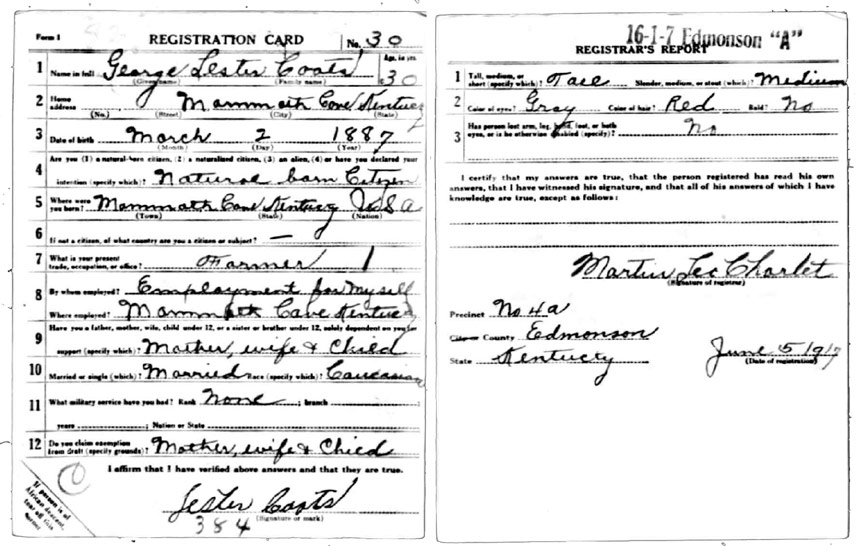 Form 1
REGISTRATION CARD No. 30
1 Name in full George Lester Coats Age, in yrs. 30
(Given name) (Family name)
2 Home address Mammoth Cave Kentucky
(No.) (Street) (City) (State)
3 Date of birth March 2 1887
(Month) (Day) (Year)
Are you (1) a natural-born citizen, (2) a naturalized citizen, (3) an alien, (4) or have you declared your
4 intention (specify which)? Natural born Citizen
5 Where were you born? Mammoth Cave Kentucky U S a
(Town) (State) (Nation)
6 If not a citizen, of what country are you a citizen or subject? —
7 What is your present trade, occupation, or office? Farmer
8 By whom employed? Employment for myself
Where employed? Mammoth Cave Kentucky
9 Have you a father, mother, wife, child under 12, or a sister or brother under 12, solely dependent on you for
support (specify which)? Mother, wife & Child
10 Married or single (which)? Married Race (specify which)? Caucasian
11 What military service have you had? Rank None ; branch
years ; Nation or State
12 Do you claim exemption from draft (specify grounds)? Mother, wife & Child
I affirm that I have verified above answers and that they are true.
Lester Coots
(Signature or mark)
384
If person is of African descent, tear off this corner
16-1-7 Edmonson "A"
REGISTRAR'S REPORT
1 Tall, medium, or short (specify which)? Tall Slender, medium, or stout (which)? Medium
2 Color of eyes? Gray Color of hair? Red Bald? No
3 Has person lost arm, leg, hand, foot, or both eyes, or is he otherwise disabled (specify)? No
I certify that my answers are true, that the person registered has read his own
answers, that I have witnessed his signature, and that all of his answers of which I have
knowledge are true, except as follows:
Martin Lee Charlet
(Signature of registrar)
Precinct No 4a
City or County Edmonson
State Kentucky June 5 1917
(Date of registration)